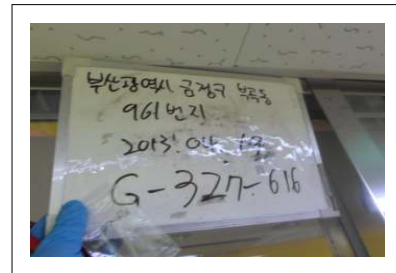 부산광역시 금정구 부곡동
961번지
2013. 04. 18
G-327-616